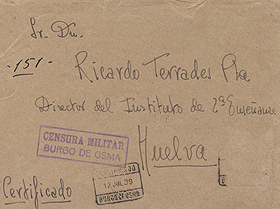 Sr. Dn.
-151-
Ricardo Terrades Pla
Director del Instituto de 2ª Enseñanza
CENSURA MILITAR
BURGO DE OSMA
Huelva
CERTIFICADO
12 JUL 38
Certificado